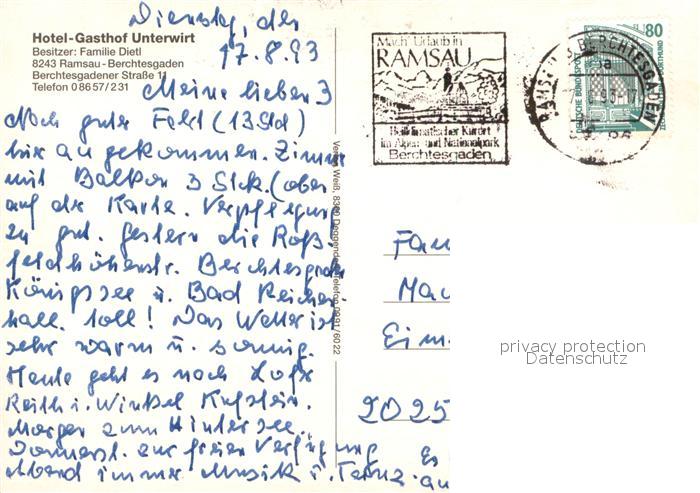 Dienstag, den
17.8.93
Hotel-Gasthof Unterwirt
Besitzer: Familie Dietl
8243 Ramsau-Berchtesgaden
Berchtesgadener Straße 11
Telefon 08657/231
Meine lieben 3
Nach guter Fahrt (13 Std)
hier angekommen. Zimmer
mit Balkon 3 Stck. (oben
auf der Karte. Verpflegung
zu gut. Gestern die Roß-
feldhöhenstr. Berchtesgaden
Königssee u. Bad Reichen
hall. toll! Das Wetter ist
sehr warm u. sonnig.
Heute geht es nach
Reith i. Winkel Kufstein.
Morgen zum Hintersee.
Donnerst. zur freien Verfügung
abend immer Musik u. Tanz.
Mach' Urlaub in
RAMSAU
Heilklimatischer Kurort
im Alpen- und Nationalpark
Berchtesgaden
RAMSAU B BERCHTESGADEN
80
DEUTSCHE BUNDESPOST
DORTMUND
Fam
Mac
Eim
2025
Es
au
privacy protection
Datenschutz